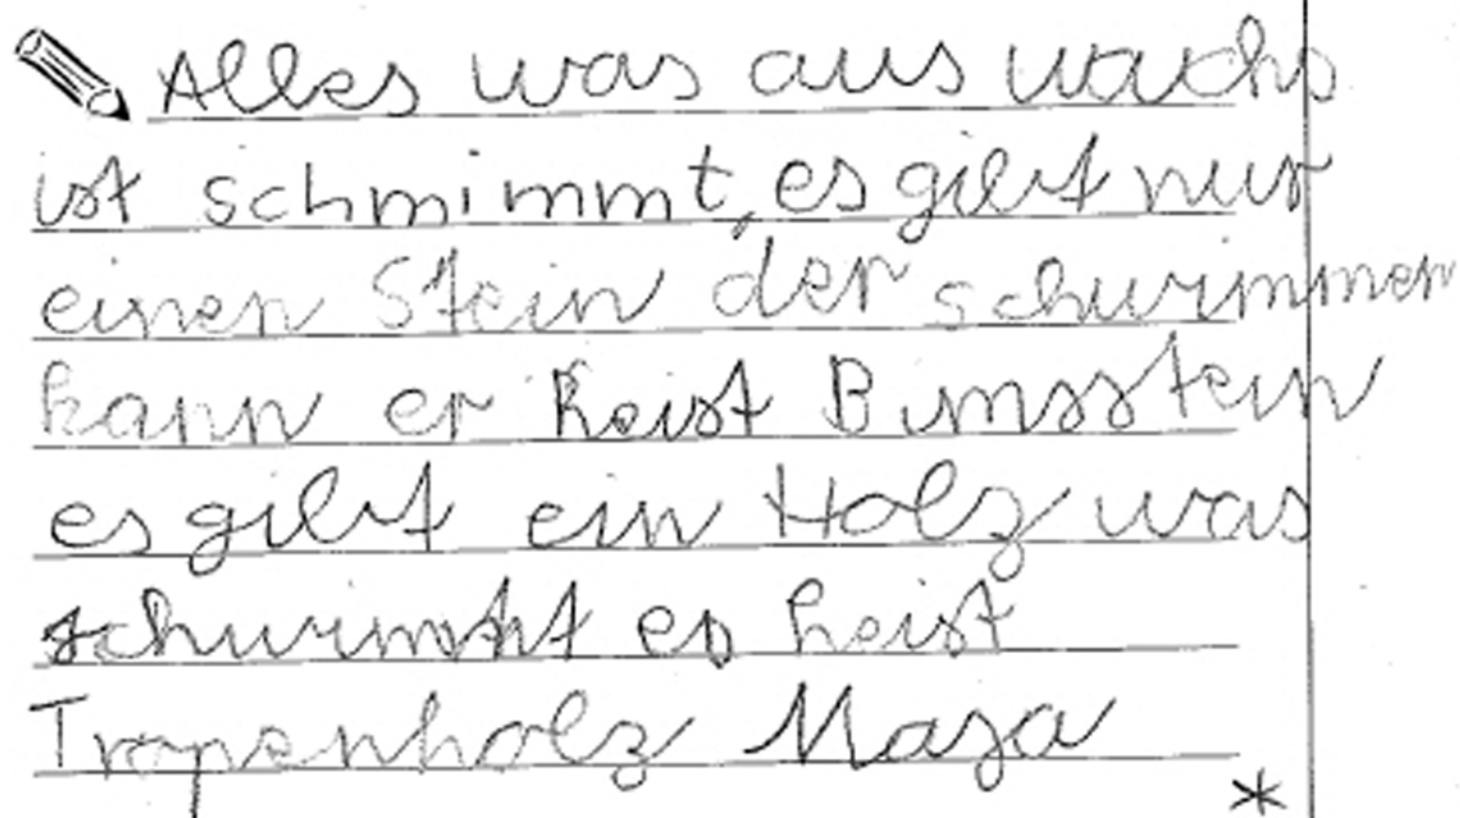 Alles was aus wachs
ist schmimmt, es gibt nur
einen Stein der schwimmen
kann er heist Bimsstein
es gibt ein Holz was
schwimmt es heist
Tropenholz Maja
*